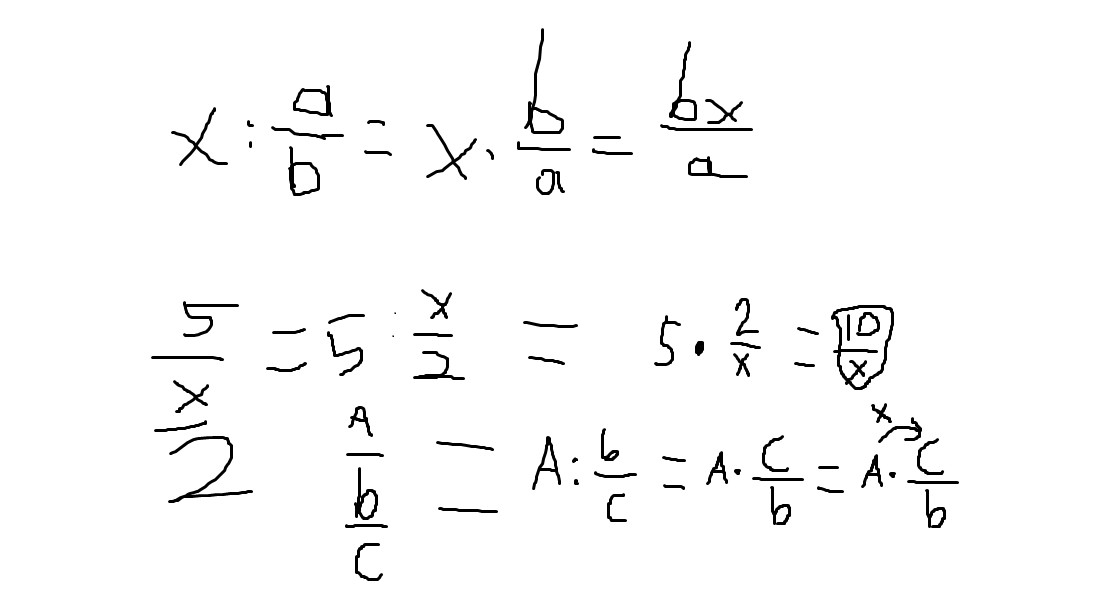 x : a/b = x · b/a = bx/a
5/(x/2) = 5 : x/2 = 5 · 2/x = 10/x
A/(b/c) = A : b/c = A · c/b = A · c/b
x